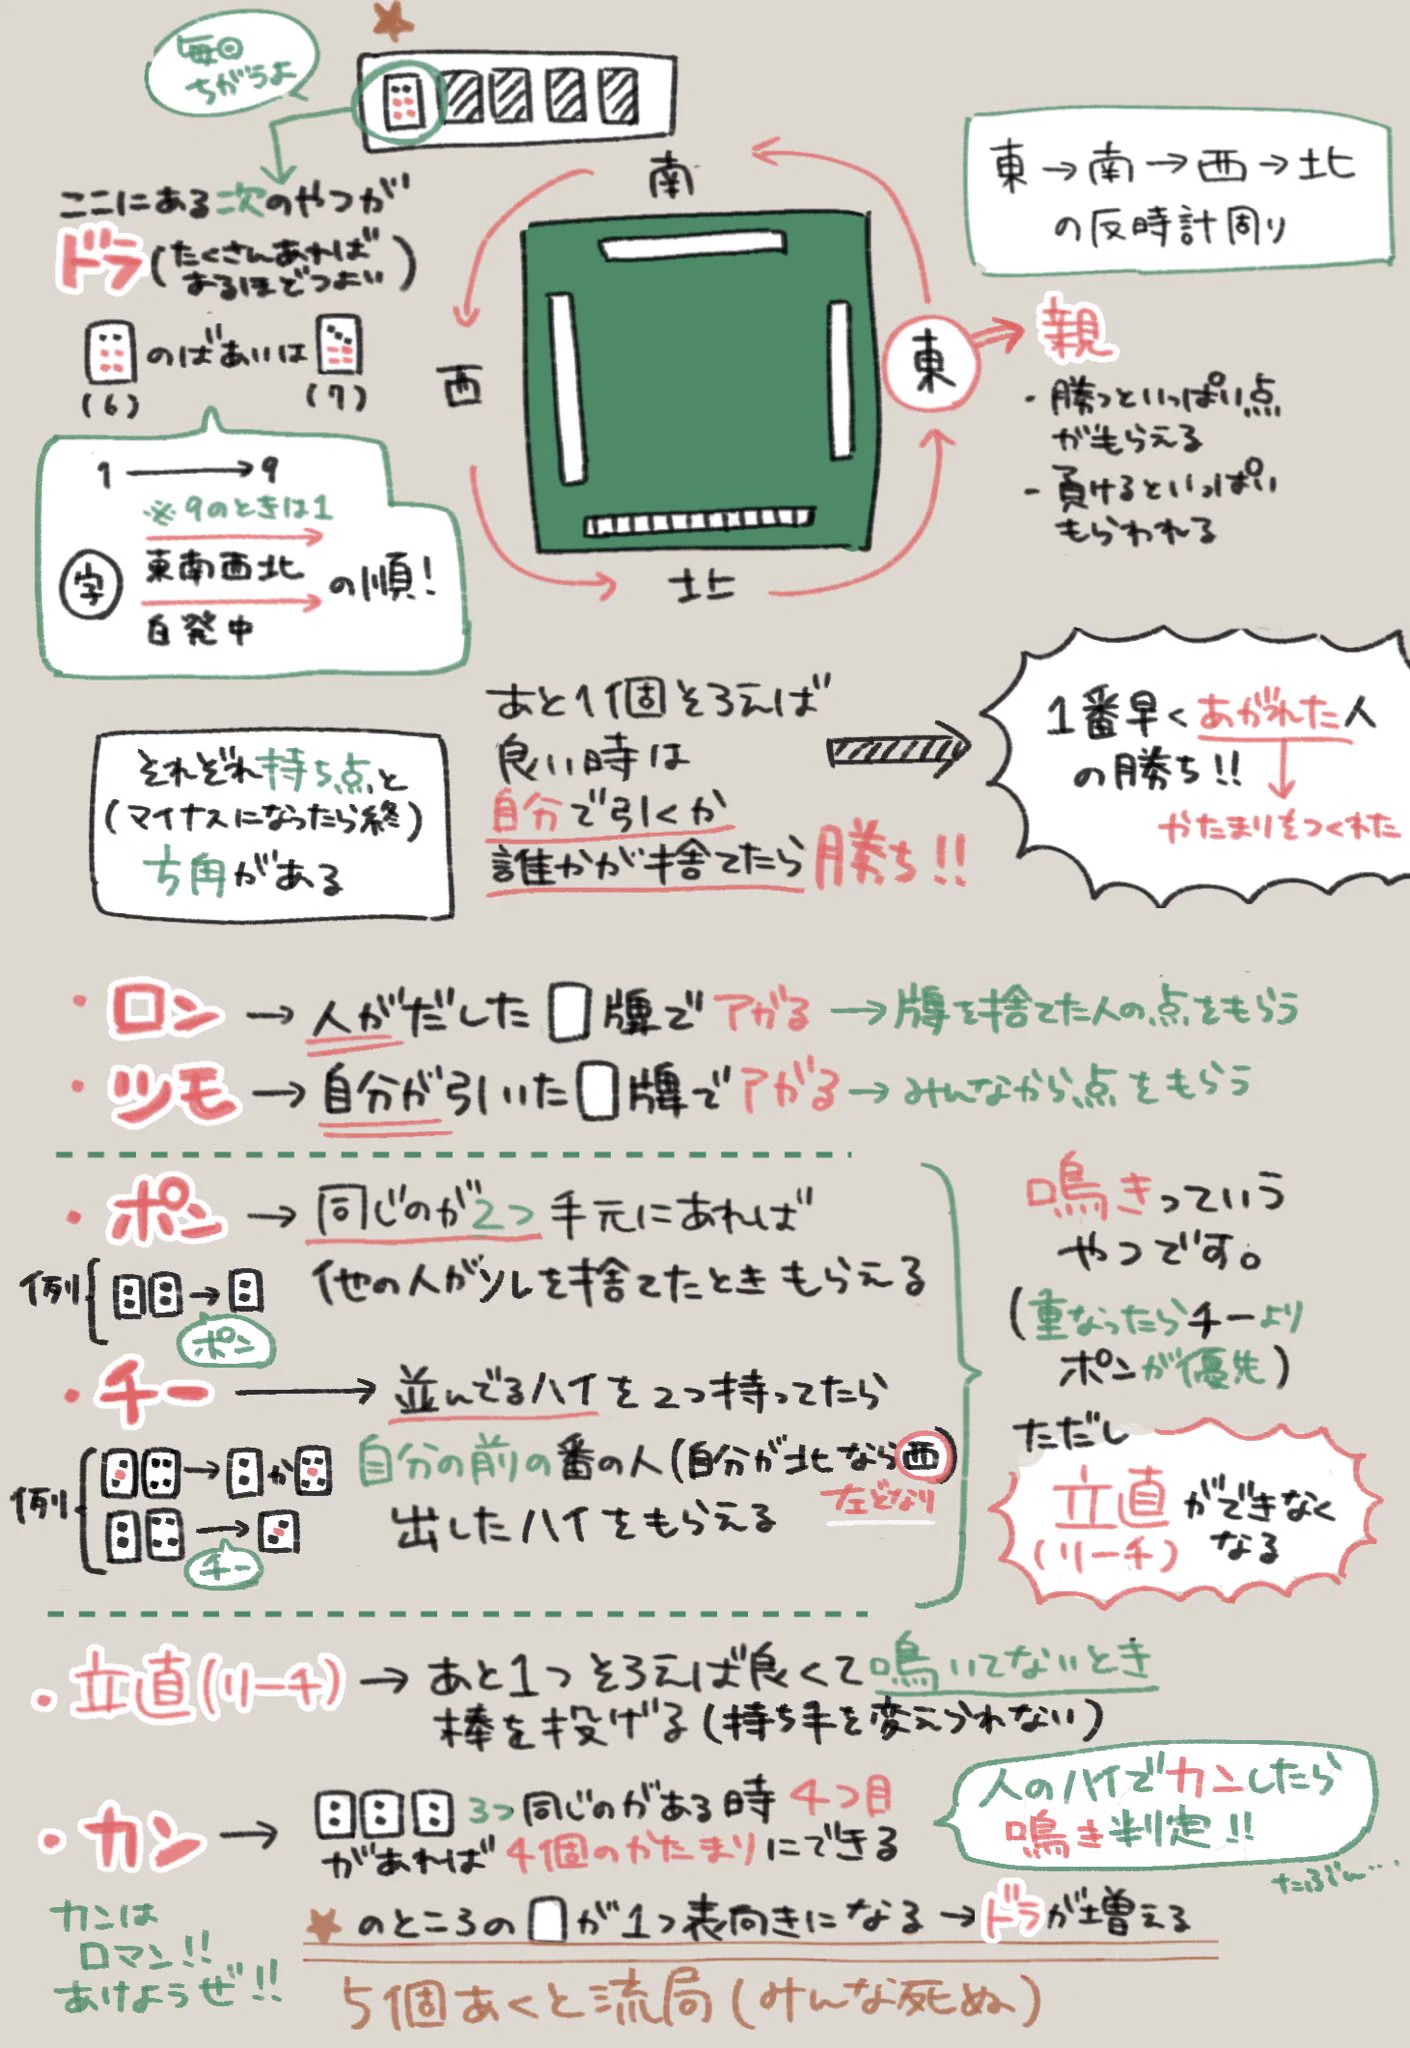 毎回
ちがうよ
ここにある次のやつが
ドラ(たくさんあれば
あるほどつよい)
のばあいは
(6)
(7)
1→9
※9のときは1
字
東南西北
白発中
の順!
南
西
東
北
東→南→西→北
の反時計周り
親
・勝つといっぱい点
がもらえる
・負けるといっぱい
もらわれる
それぞれ持ち点と
(マイナスになったら終)
方角がある
あと1個そろえば
良い時は
自分で引くか
誰かが捨てたら勝ち!!
1番早くあがれた人
の勝ち!!
かたまりをつくれた
・ロン→人がだした牌でアガる→牌を捨てた人の点をもらう
・ツモ→自分が引いた牌でアガる→みんなから点をもらう
・ポン→同じのが2つ手元にあれば
他の人がソレを捨てたときもらえる
例
→
ポン
・チー→並んでるハイを2つ持ってたら
自分の前の番の人(自分が北なら西)
左どなり
出したハイをもらえる
例
→か
→
チー
鳴きっていう
やつです。
(重なったらチーより
ポンが優先)
ただし
立直ができなく
(リーチ)なる
・立直(リーチ)→あと1つそろえば良くて鳴いてないとき
棒を投げる(持ち手を変えられない)
・カン→3つ同じのがある時4つ目
があれば4個のかたまりにできる
人のハイでカンしたら
鳴き判定!!
たぶん…
カンは
ロマン!!
あけようぜ!!
★のところのが1つ表向きになる→ドラが増える
5個あくと流局(みんな死ぬ)